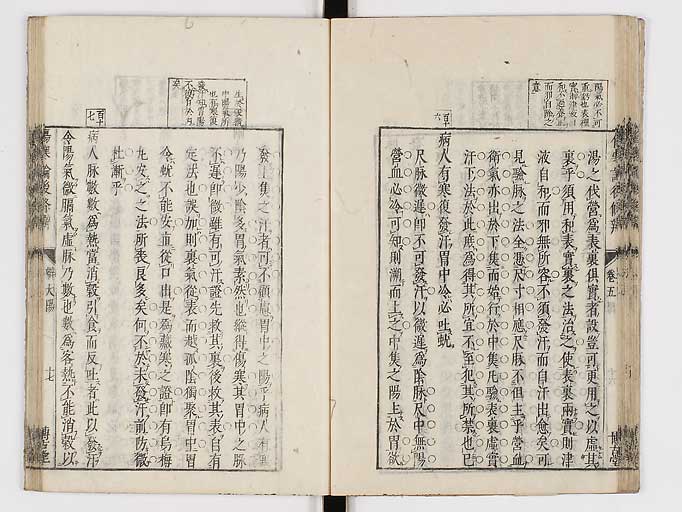 陽氣必不可
意
湯之伐營為表裏俱實者設豈可更用之以虛其
裏乎須用和表實裏之法治之使表裏兩實則津
液自和而邪無所容不須發汗而自汗出愈矣可
見驗脉之法全憑尺寸相應尺脉不但主乎營血
衛氣亦出於下焦而始行於中焦凡驗表裏虛實
汗下法於此處為得其所宜不至犯其所禁也已
百十六
病人有寒復發汗胃中冷必吐蚘
尺脉微遲即不可發汗以微遲為陰脉尺中無陽
營血必冷可知則溯而上之中焦之陽上於胃欲
卷五
矣
發上焦之汗者可不顧慮胃中之陽乎病人有寒
乃陽少陰多胃氣素然也縱得傷寒其胃中之脉
不遲即微雖有可汗證先救其裏後救其表自有
定法也誤加則裏氣從表而越孤陰獨聚胃中胃
令蚘不能安並從口出是為藏寒之證即有烏梅
丸安之之法所喪良多矣何不於未發汗前防微
杜漸乎
百十七
病人脉數數為熱當消穀引食而反吐者此以發汗
令陽氣微膈氣虛脉乃數也數為客熱不能消穀以
傷寒論後條辨
辨太陽
十七
博古堂